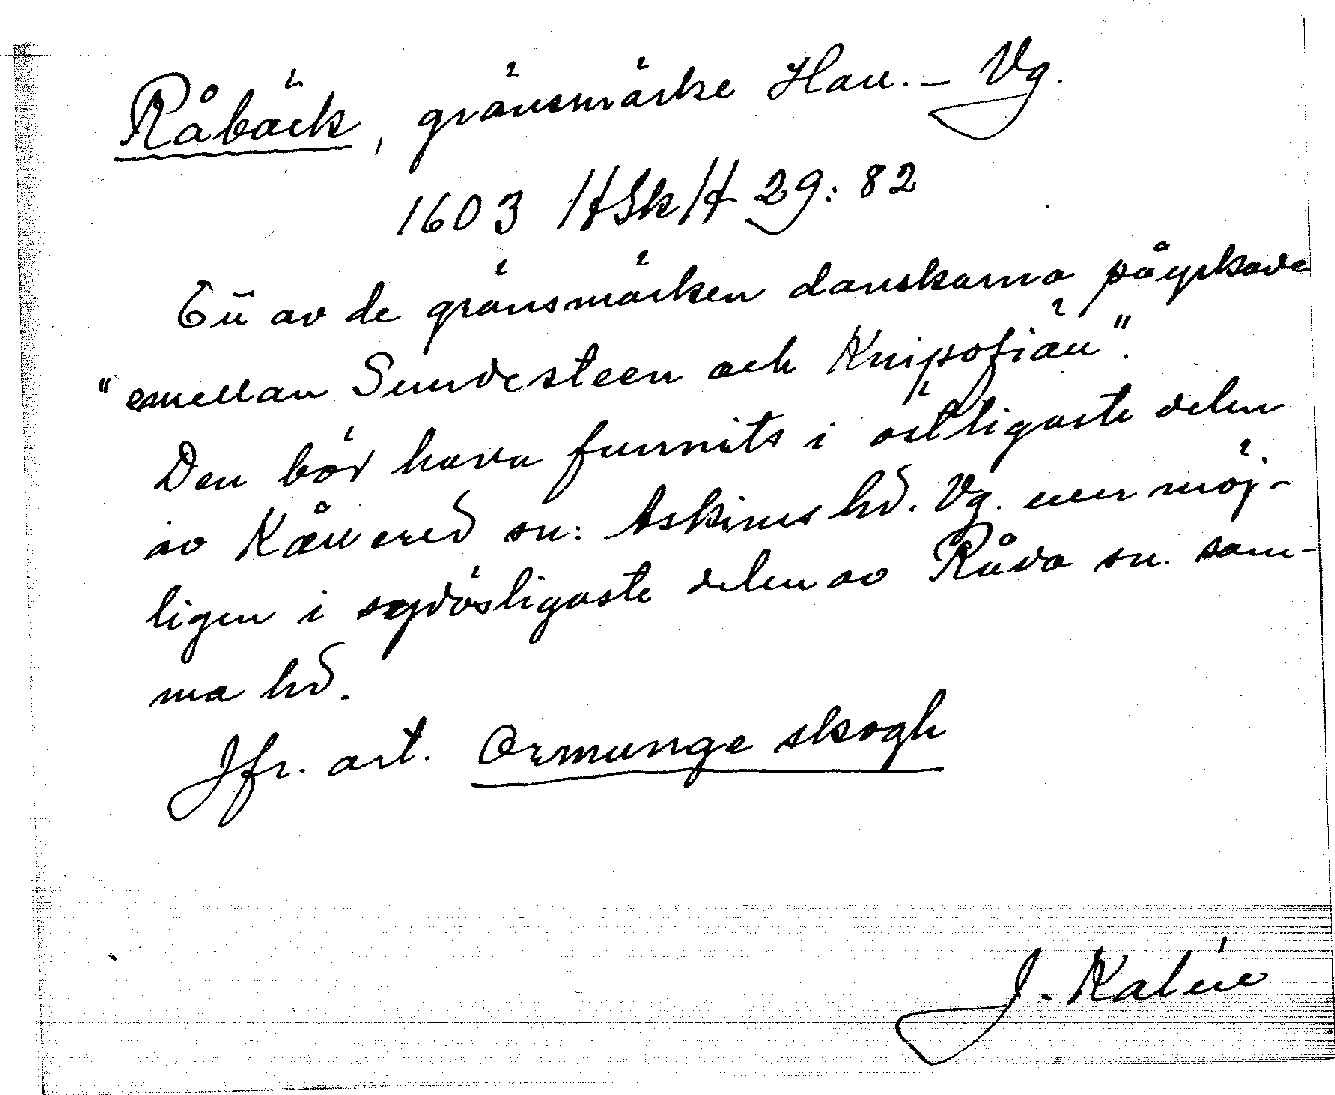 Råbäck, gränsmärke Hall. – Vg.
1603 HSkH 29: 82
Ett av de gränsmärken danskarna påyrkade
"emellan Sundesteen och Knipofiäll".
Den bör hava funnits i östligaste delen
av Kållered sn: Askims hd. Vg. eller möj-
ligen i sydöstligaste delen av Råda sn. sam-
ma hd.
Jfr. art. Ormunge skogh
J. Kalén